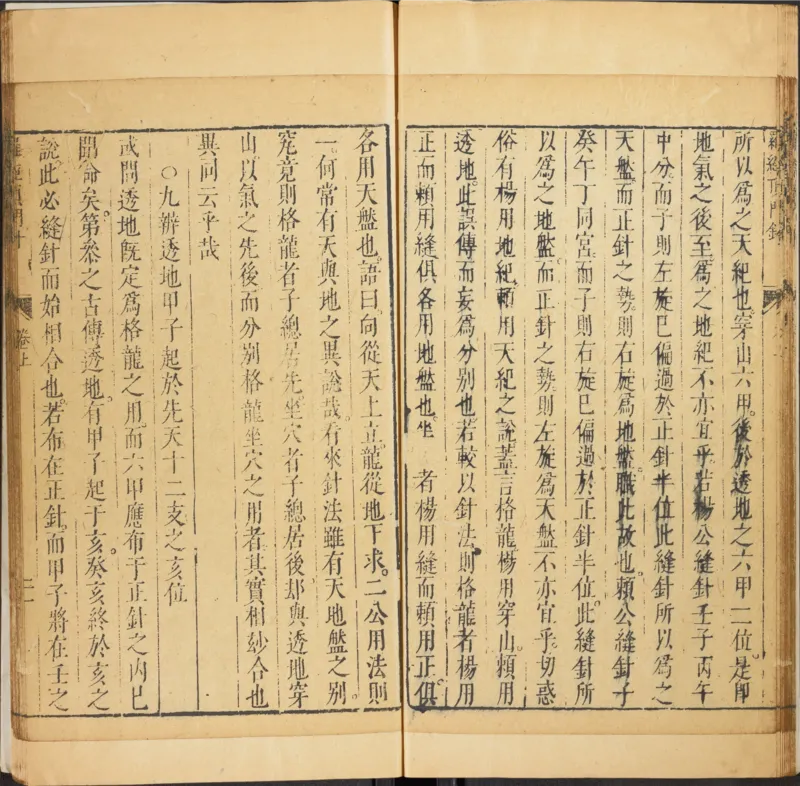 所以為之天紀也穿山六甲後於透地之六甲二位是即
地氣之後至為之地紀不亦宜乎若楊公縫針壬子丙午
中分而子則左旋巳偏過於正針半位此縫針所以為之
天盤而正針之勢則右旋為地盤職此故也賴公縫針子
癸午丁同宮而子則右旋巳偏過於正針半位此縫針所
以為之地盤而正針之勢則左旋為天盤不亦宜乎切惑
俗有楊用地紀賴用天紀之說蓋言格龍楊用穿山賴用
透地此誤傳而妄為分別也若較以針法則格龍者楊用
正而賴用縫俱各用地盤也坐 者楊用縫而賴用正俱
各用天盤也語曰向從天上立龍從地下求二公用法則
一何常有天與地之異說哉看來針法雖有天地盤之別
究竟則格龍者子總居先坐穴者子總居後却與透地穿
山以氣之先後而分別格龍坐穴之用者其實相玅合也
異同云乎哉
○九辨透地甲子起於先天十二支之亥位
或問透地旣定為格龍之用而六甲應布于正針之內巳
聞命矣第叅之古傳透地有甲子起于亥癸亥終於亥之
說此必縫針而始相合也若布在正針而甲子將在壬之
卷上